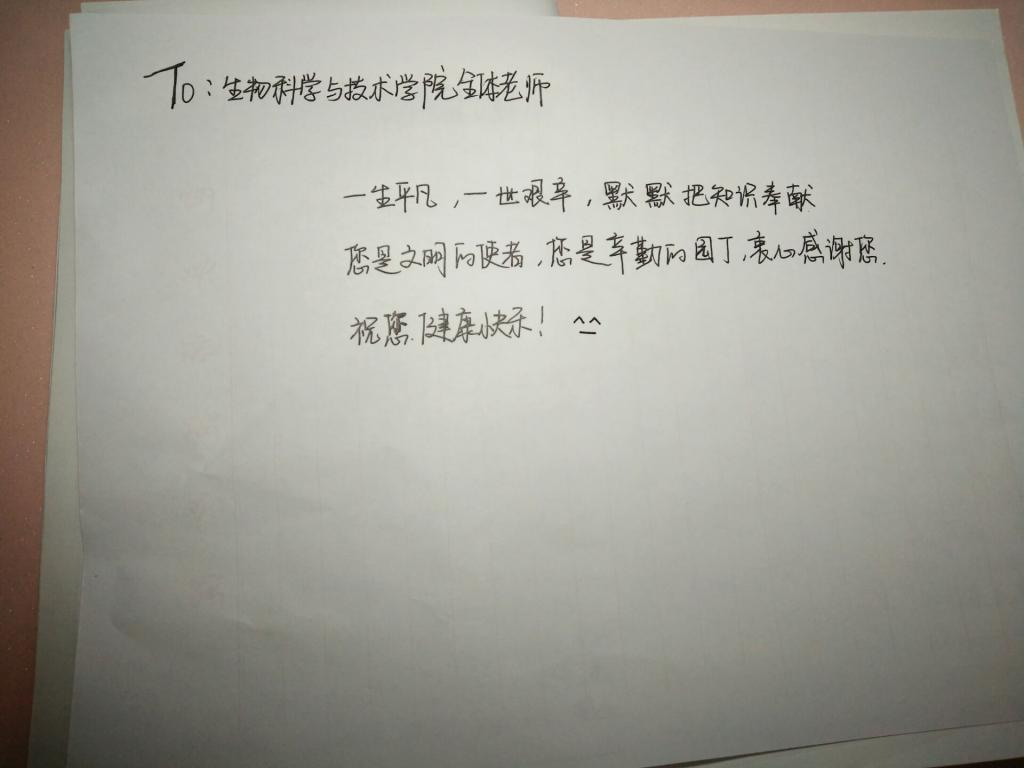 To：生物科学与技术学院全体老师
一生平凡，一世艰辛，默默把知识奉献
您是文明的使者，您是辛勤的园丁，衷心感谢您.
祝您健康快乐！^_^